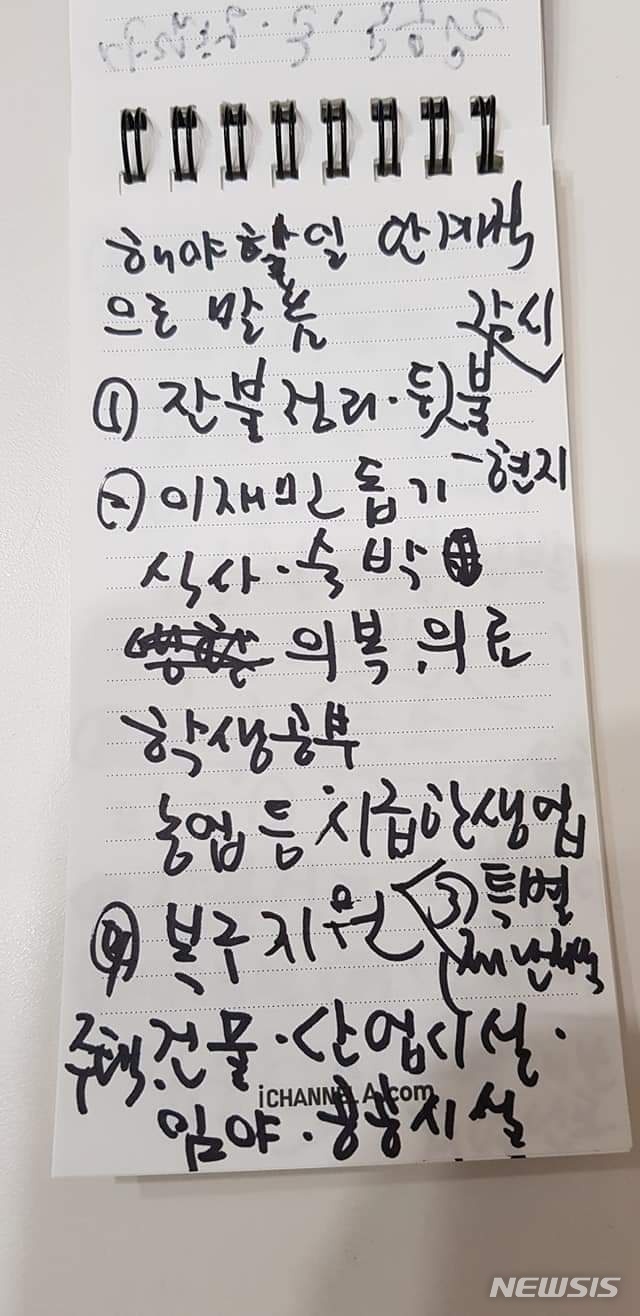 해야할일 단계적
으로 말씀
감시
① 잔불정리·뒷불
② 이재민돕기 -현지
식사·숙박
의복, 의료
학생공부
농업 등 시급한생업
④ 복구지원 ③ 특별
재난지역
주택, 건물·산업시설·
iCHANNELA.com
임야·공공시설
NEWSIS